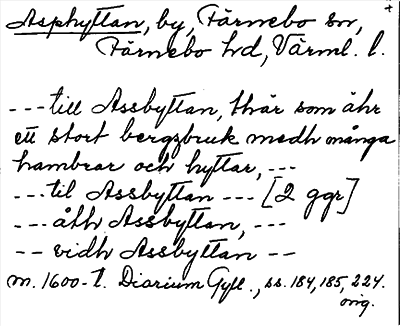 Asphyttan, by, Färnebo sn,
Färnebo hd, Värml. l.
--- till Assbyttan, thär som ähr
ett stort bergzbruk medh många
hambrar och hyttar, ---
--- til Assbyttan --- [2 ggr]
--- åth Assbyttan, ---
-- vidh Assbyttan --
m. 1600-t. Diarium Gyll., ss. 184, 185, 224.
orig.